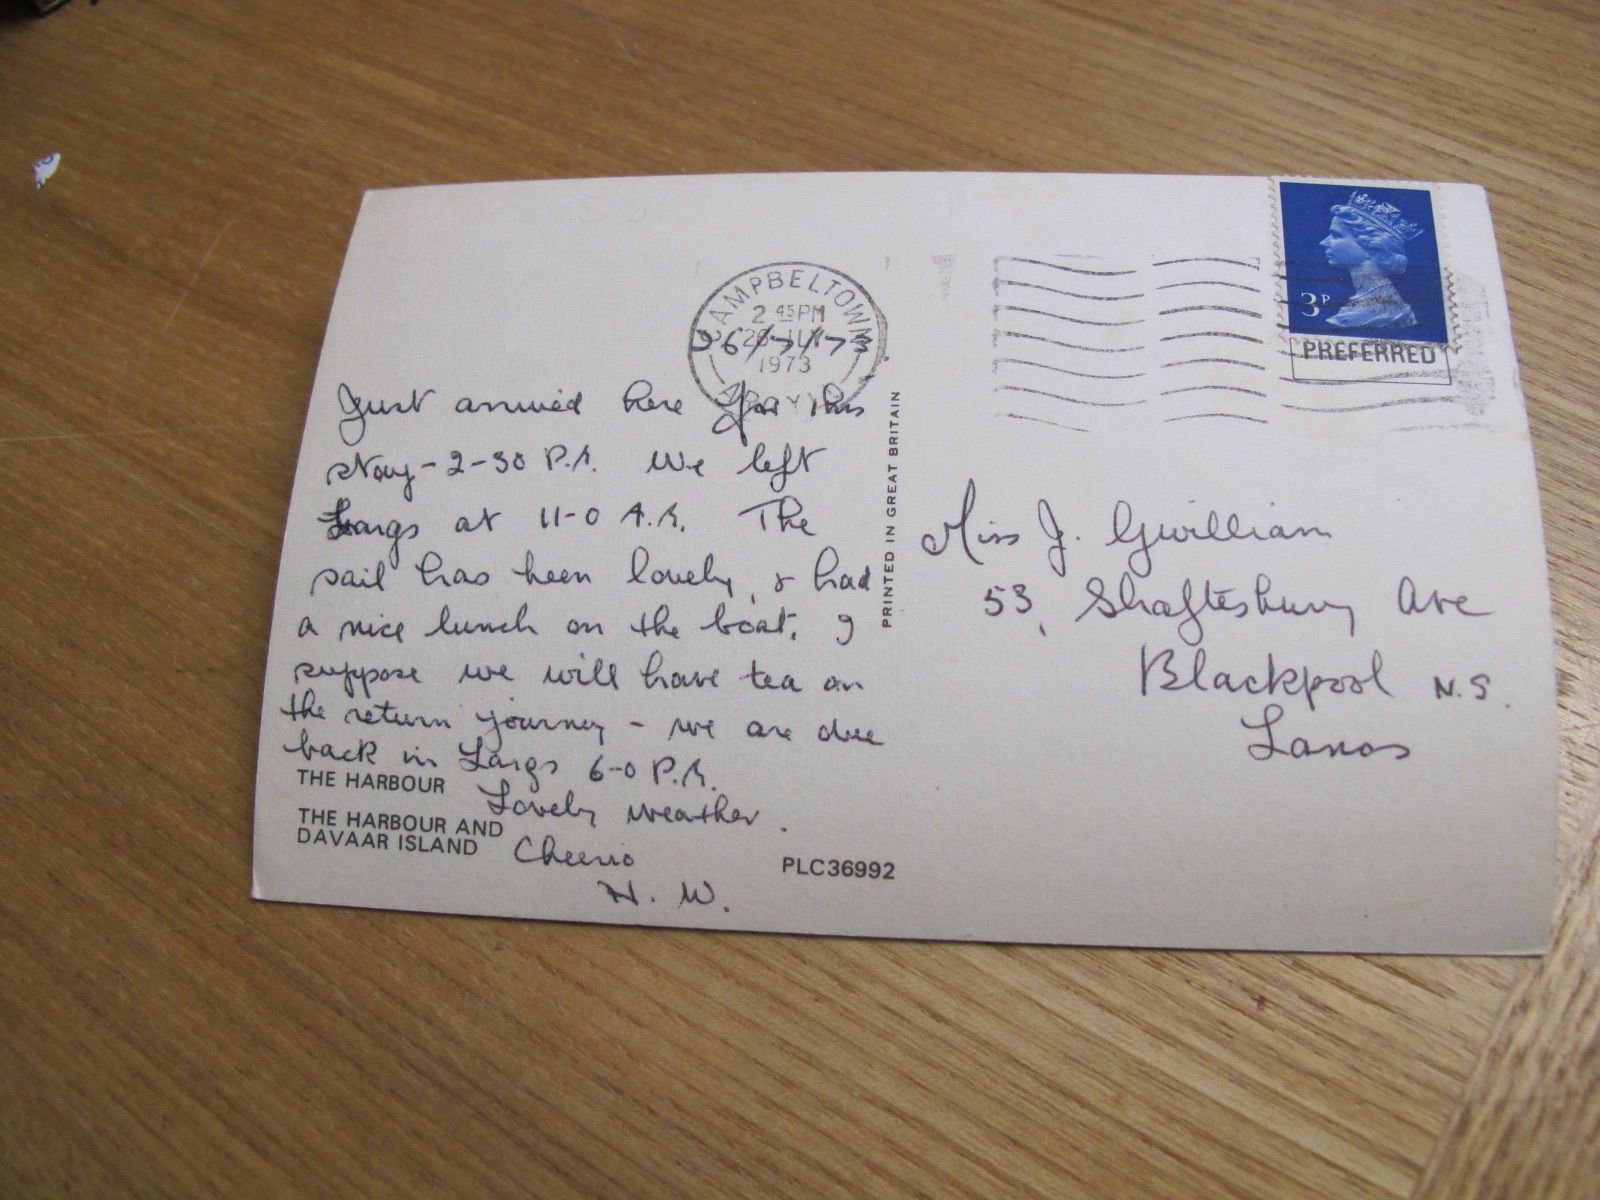 CAMPBELTOWN
2 45 PM
26 JLY
1973
ARGYLL
26/7/73
3P
PREFERRED
Just arrived here for this
stay - 2-30 P.M. We left
Largs at 11-0 A.M. The
sail has been lovely, & had
a nice lunch on the boat. I
suppose we will have tea on
the return journey - we are due
back in Largs 6-0 P.M.
Lovely weather.
Cheerio
N. W.
THE HARBOUR
THE HARBOUR AND
DAVAAR ISLAND
PLC36992
PRINTED IN GREAT BRITAIN
Miss J. Gwilliam
53, Shaftesbury Ave
Blackpool N.S.
Lancs